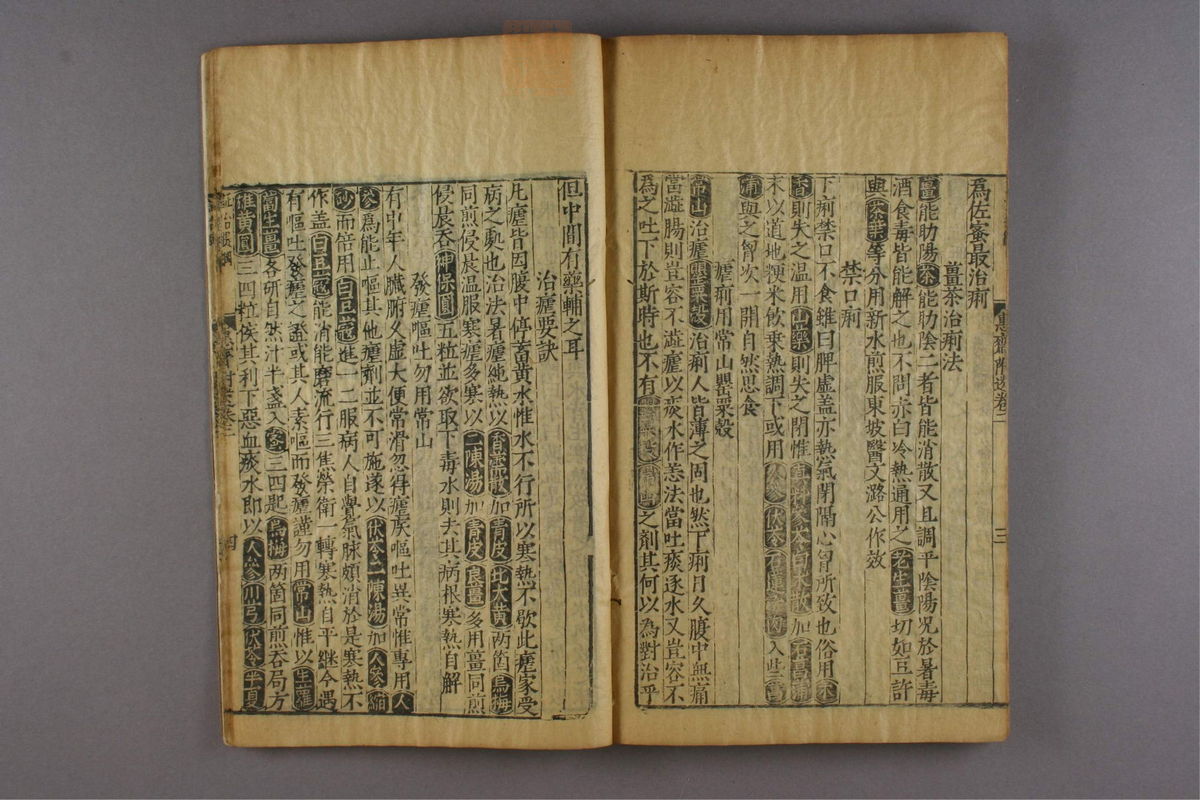 為佐蜜最治痢
薑茶治痢法
薑能助陽茶能助陰二者皆能消散又且調平陰陽況於暑毒
酒食毒皆能解之也不問赤白冷熱通用之老生薑切如豆許
與茶葉等分用新水煎服東坡醫文潞公作效
禁口痢
下痢禁口不食雖曰脾虛盖亦熱氣閉隔心胷所致也俗用木
香則失之温用山藥則失之閉惟真料參苓白朮散加石菖蒲
末以道地粳米飲乗熱調下或用人參伏苓石蓮子肉入些菖
蒲與之胷次一開自然思食
瘧痢用常山罌粟殻
常山治瘧罌粟殻治痢人皆薄之固也然下痢日久腹中無痛
當澁腸則豈容不澁瘧以痰水作恙法當吐痰逐水又豈容不
為之吐下於斯時也不有之劑其何以為對治乎
三
但中間有藥輔之耳
治瘧要訣
凡瘧皆因腹中停蓄黄水惟水不行所以寒熱不歇此瘧家受
病之奥也治法暑瘧純熱以香薷散加青皮北大黄两箇烏梅
同煎侵晨温服寒瘧多寒以二陳湯加青皮良薑多用薑同煎
侵晨吞神保圓五粒並欲取下毒水則去其病根寒熱自解
發瘧嘔吐勿用常山
有中年人臟腑久虛大便常滑忽得瘧疾嘔吐異常惟專用人
參為能止嘔其他瘧劑並不可施遂以伏苓二陳湯加人參縮
砂而倍用白豆蔻進一二服病人自覺氣脉頗消於是寒熱不
作盖白豆蔻能消能磨流行三焦榮衛一轉寒熱自平繼今遇
有嘔吐發瘧之證或其人素嘔而發瘧謹勿用常山惟以生蘿
蔔生薑各研自然汁半盞入蜜三四匙烏梅两箇同煎吞局方
雄黄圓三四粒候其利下惡血痰水即以人參川芎伏苓半夏
四